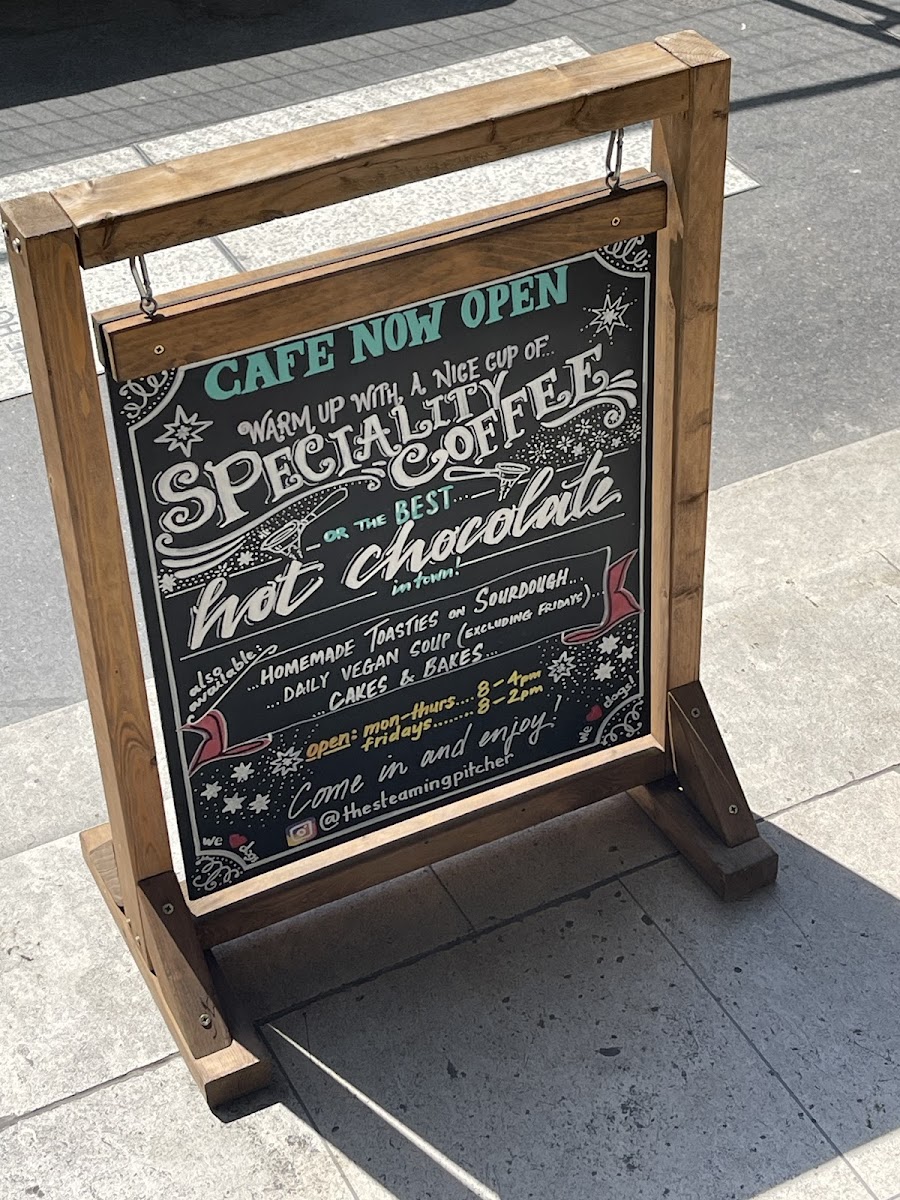 CAFE NOW OPEN
WARM UP WITH A NICE CUP OF...
SPECIALITY
COFFEE
OR THE BEST...
hot chocolate
in town!
also
available:
...HOMEMADE TOASTIES ON SOURDOUGH...
...DAILY VEGAN SOUP (EXCLUDING FRIDAYS)...
...CAKES & BAKES...
open: mon-thurs.... 8-4pm
fridays........ 8-2pm
Come in and enjoy!
@thesteamingpitcher
we dogs!
we